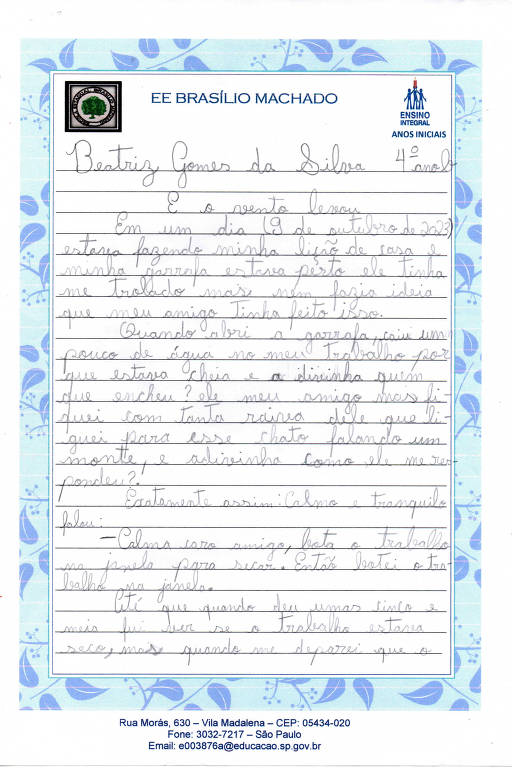 EE BRASÍLIO MACHADO
ENSINO
INTEGRAL
ANOS INICIAIS
Beatriz Gomes da Silva 4º ano b
E o vento levou
Em um dia (9 de outubro de 2023)
estava fazendo minha lição de casa e
minha garrafa estava perto ele tinha
me trolado mas nem fazia ideia
que meu amigo tinha feito isso.
Quando abri a garrafa, caiu um
pouco de água no meu trabalho por
que estava cheia e a divinha quem
que encheu? ele meu amigo mas fi-
quei com tanta raiva dele que li-
guei para esse chato falando um
monte, e adivinha como ele me res-
pondeu?.
Exatamente assim: Calmo e tranquilo
falou:
—Calma caro amigo, bota o trabalho
na janela para secar. Então botei o tra-
balho na janela.
Até que quando deu umas cinco e
meia fui ver se o trabalho estava
seco, mas quando me deparei que o
Rua Morás, 630 – Vila Madalena – CEP: 05434-020
Fone: 3032-7217 – São Paulo
Email: e003876a@educacao.sp.gov.br